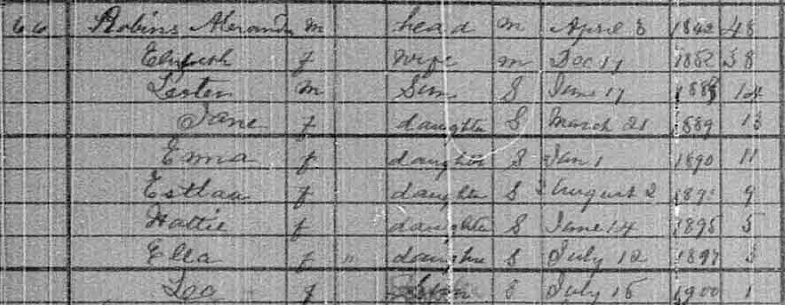 66 Robins Alexander m head m April 8 1842 48
Elizabeth f Wife m Dec 17 1862 38
Lester m Son S June 17 188 14
Jane f daughter S March 21 1889 13
Emma f daughter S Jan 1 1890 11
f daughter S August 2 189 9
Hattie f daughter S June 14 1895 5
Ella f " daughter S July 12 1897 3
Leo f S July 15 1900 1